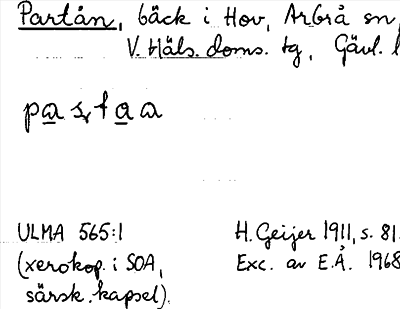 Partån, bäck i Hov, Arbrå sn
V. Häls. doms. tg, Gävl. l
pas,taa
ULMA 565:1
(xerokop. i SOA,
särsk. kapsel).
H. Geijer 1911, s. 81.
Exc. av E.Å. 1968